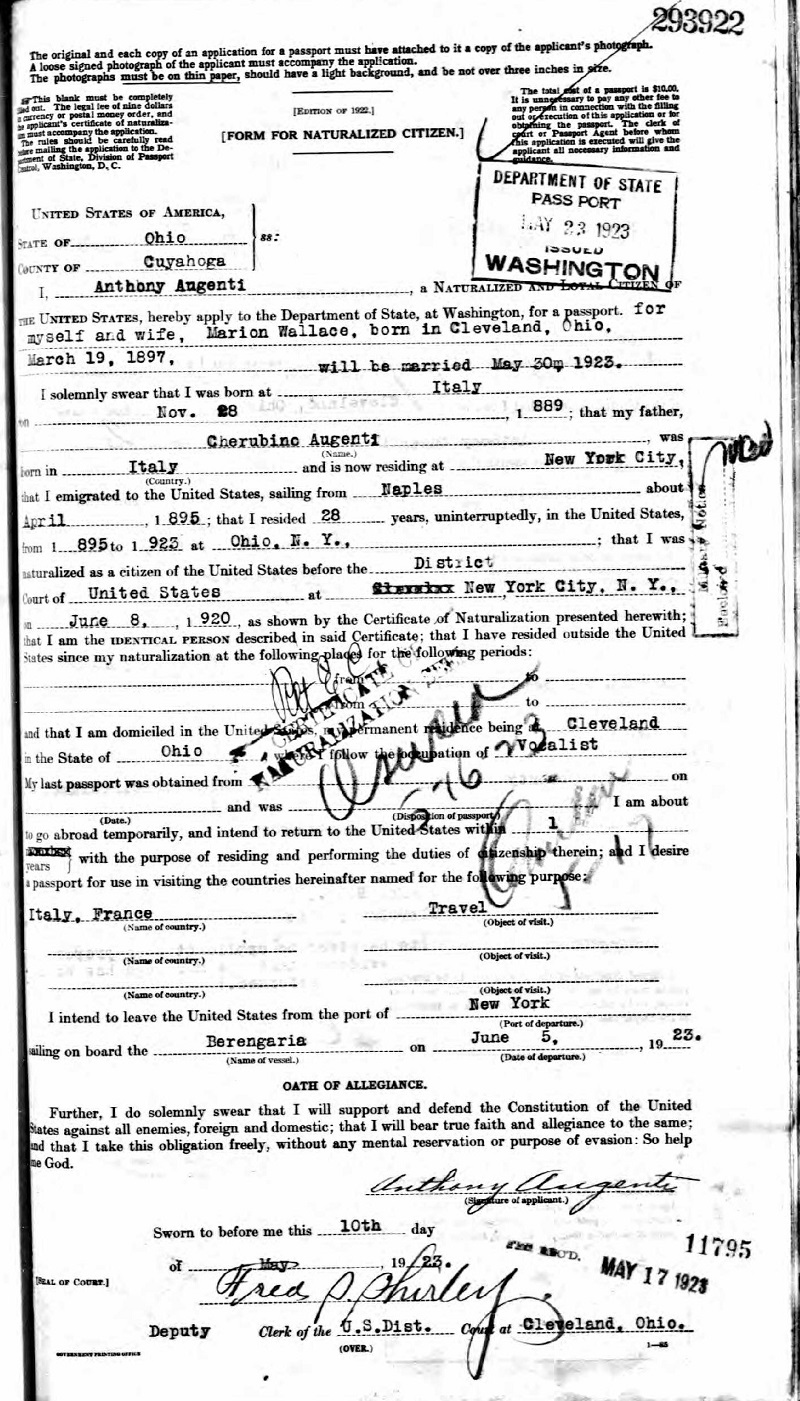 293922
The original and each copy of an application for a passport must have attached to it a copy of the applicant's photograph.
A loose signed photograph of the applicant must accompany the application.
The photographs must be on thin paper, should have a light background, and be not over three inches in size.
This blank must be completely
filled out. The legal fee of nine dollars
in currency or postal money order, and
the applicant's certificate of naturaliza-
tion must accompany the application.
The rules should be carefully read
before mailing the application to the De-
partment of State, Division of Passport
Control, Washington, D. C.
[EDITION OF 1922.]
[FORM FOR NATURALIZED CITIZEN.]
The total cost of a passport is $10.00.
It is unnecessary to pay any other fee to
any person in connection with the filling
out or execution of this application or for
obtaining the passport. The clerk of
court or Passport Agent before whom
this application is executed will give the
applicant all necessary information and
guidance.
DEPARTMENT OF STATE
PASSPORT
MAY 23 1923
ISSUED
WASHINGTON
UNITED STATES OF AMERICA,
STATE OF Ohio
ss:
COUNTY OF Cuyahoga
I, Anthony Augenti, a NATURALIZED AND LOYAL CITIZEN OF
THE UNITED STATES, hereby apply to the Department of State, at Washington, for a passport. for
myself and wife, Marion Wallace, born in Cleveland, Ohio,
March 19, 1897, will be married May 30m 1923.
I solemnly swear that I was born at Italy
on Nov. 28, 1889; that my father,
Cherubino Augenti, was
(Name.)
born in Italy and is now residing at New York City,
(Country.)
that I emigrated to the United States, sailing from Naples about
April, 1895; that I resided 28 years, uninterruptedly, in the United States,
from 1895 to 1923 at Ohio, N. Y.,; that I was
naturalized as a citizen of the United States before the District
Court of United States at New York City, N. Y.,
on June 8, 1920, as shown by the Certificate of Naturalization presented herewith;
that I am the IDENTICAL PERSON described in said Certificate; that I have resided outside the United
States since my naturalization at the following places for the following periods:
from to
from to
CERTIFICATE OF
NATURALIZATION
and that I am domiciled in the United States, my permanent residence being at Cleveland
in the State of Ohio, where I follow the occupation of Vocalist
My last passport was obtained from on
and was I am about
(Date.) (Disposition of passport.)
to go abroad temporarily, and intend to return to the United States within 1
years } with the purpose of residing and performing the duties of citizenship therein; and I desire
a passport for use in visiting the countries hereinafter named for the following purpose:
Italy, France Travel
(Name of country.) (Object of visit.)
(Name of country.) (Object of visit.)
(Name of country.) (Object of visit.)
I intend to leave the United States from the port of New York
(Port of departure.)
sailing on board the Berengaria on June 5, 1923.
(Name of vessel.) (Date of departure.)
OATH OF ALLEGIANCE.
Further, I do solemnly swear that I will support and defend the Constitution of the United
States against all enemies, foreign and domestic; that I will bear true faith and allegiance to the same;
and that I take this obligation freely, without any mental reservation or purpose of evasion: So help
me God.
Anthony Augenti
(Signature of applicant.)
Sworn to before me this 10th day
of May, 1923.
FEE REC'D.
11795
MAY 17 1923
[SEAL OF COURT.]
Fred S. Shirley
Deputy Clerk of the U.S.Dist. Court at Cleveland, Ohio.
(OVER.)
GOVERNMENT PRINTING OFFICE